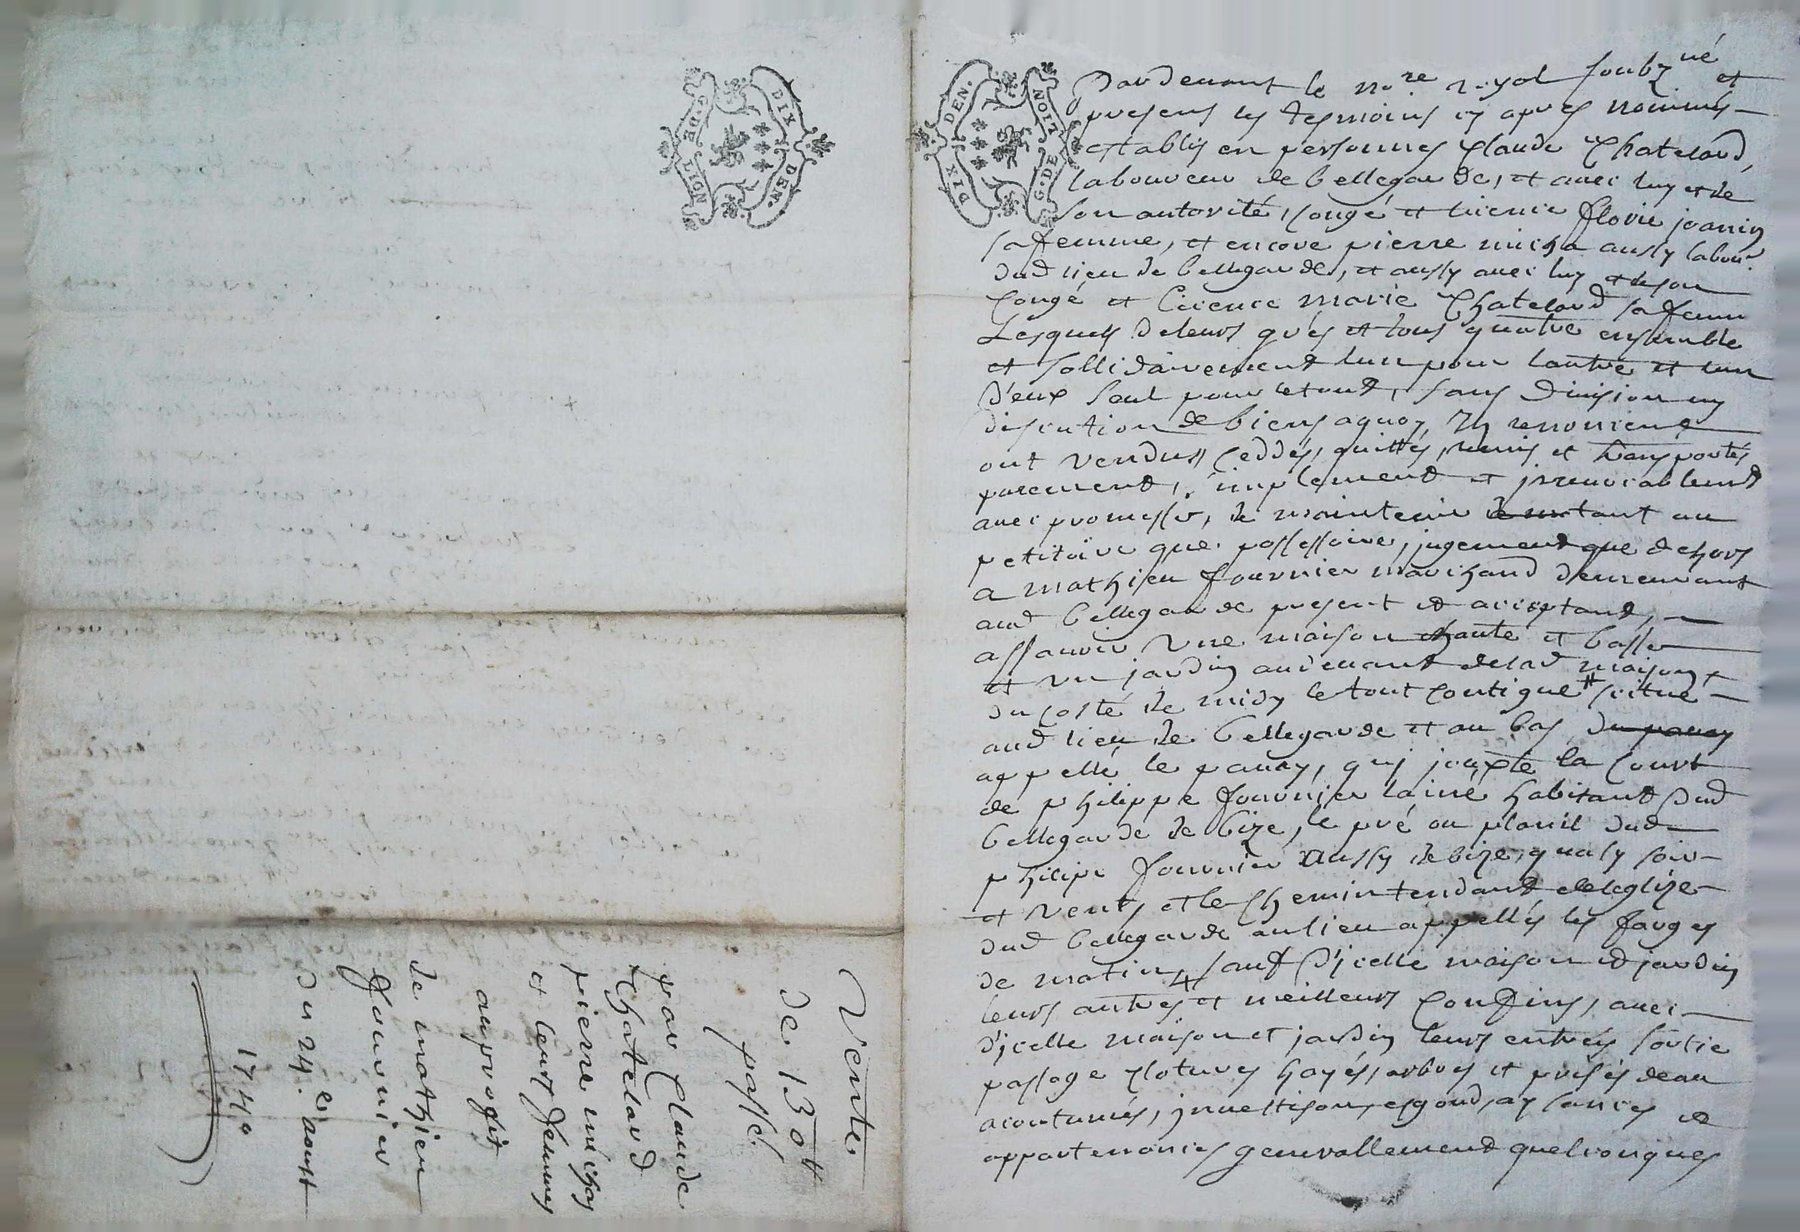 G. DE LION
DIX DEN.
DIX DEN.
G. DE LION
Vente
de 130tt
passé
par Claude
Chatelard
pierre michas
et leurs femmes
au profit
de mathieu
fournier
du 24e aoust
1740
Pardevant le nore royal soubzné et
presens les tesmoins cy apres nommés
establis en personnes Claude Chatelard,
laboureur de bellegarde, et avec luy et de
son autorité, congé et licence florie joanin
sa femme, et encore pierre micha aussy labour
dud lieu de bellegarde, et aussy avec luy et de son
congé et licence marie Chatelard sa femme
Lesquels de leurs grés et tous quatre ensemble
et sollidairement l'un pour lautre et lun
d'eux seul pour letout, sans division ny
discution de biens aquoy Ils renoncent
ont vendus, ceddés, quittés, remis et transportés
purement, simplement et jrrevocablement
avec promesse, de maintenir tant au
petitoire que possessoire, jugement que dehors
a mathieu fournier marchand demeurant
aud bellegarde present et acceptant,
assavoir une maison haute et basse
et un jardin audevant delad maison
du costé de midy le tout contigue scitué
aud lieu de bellegarde et au bas du pavay
appellé le pavay, quj jouxte la court
de philippe fournier lainé habitant dud
bellegarde de bize, le pré ou planil dud
philipe fournier aussy de bize, quasy soir
et vent, et le chemin tendant de leglize
dud bellegarde au lieu appellés les farges
de matin, sauf d'jcelle maison et jardin
leurs autres et meilleurs confins, avec
d'jcelle maison et jardin leurs entrées sortie
passage clotures hayés, arbres et prisés deau
acoutumés, jnvestisons, esgouds, aysances et
appartenances generallement quelconques